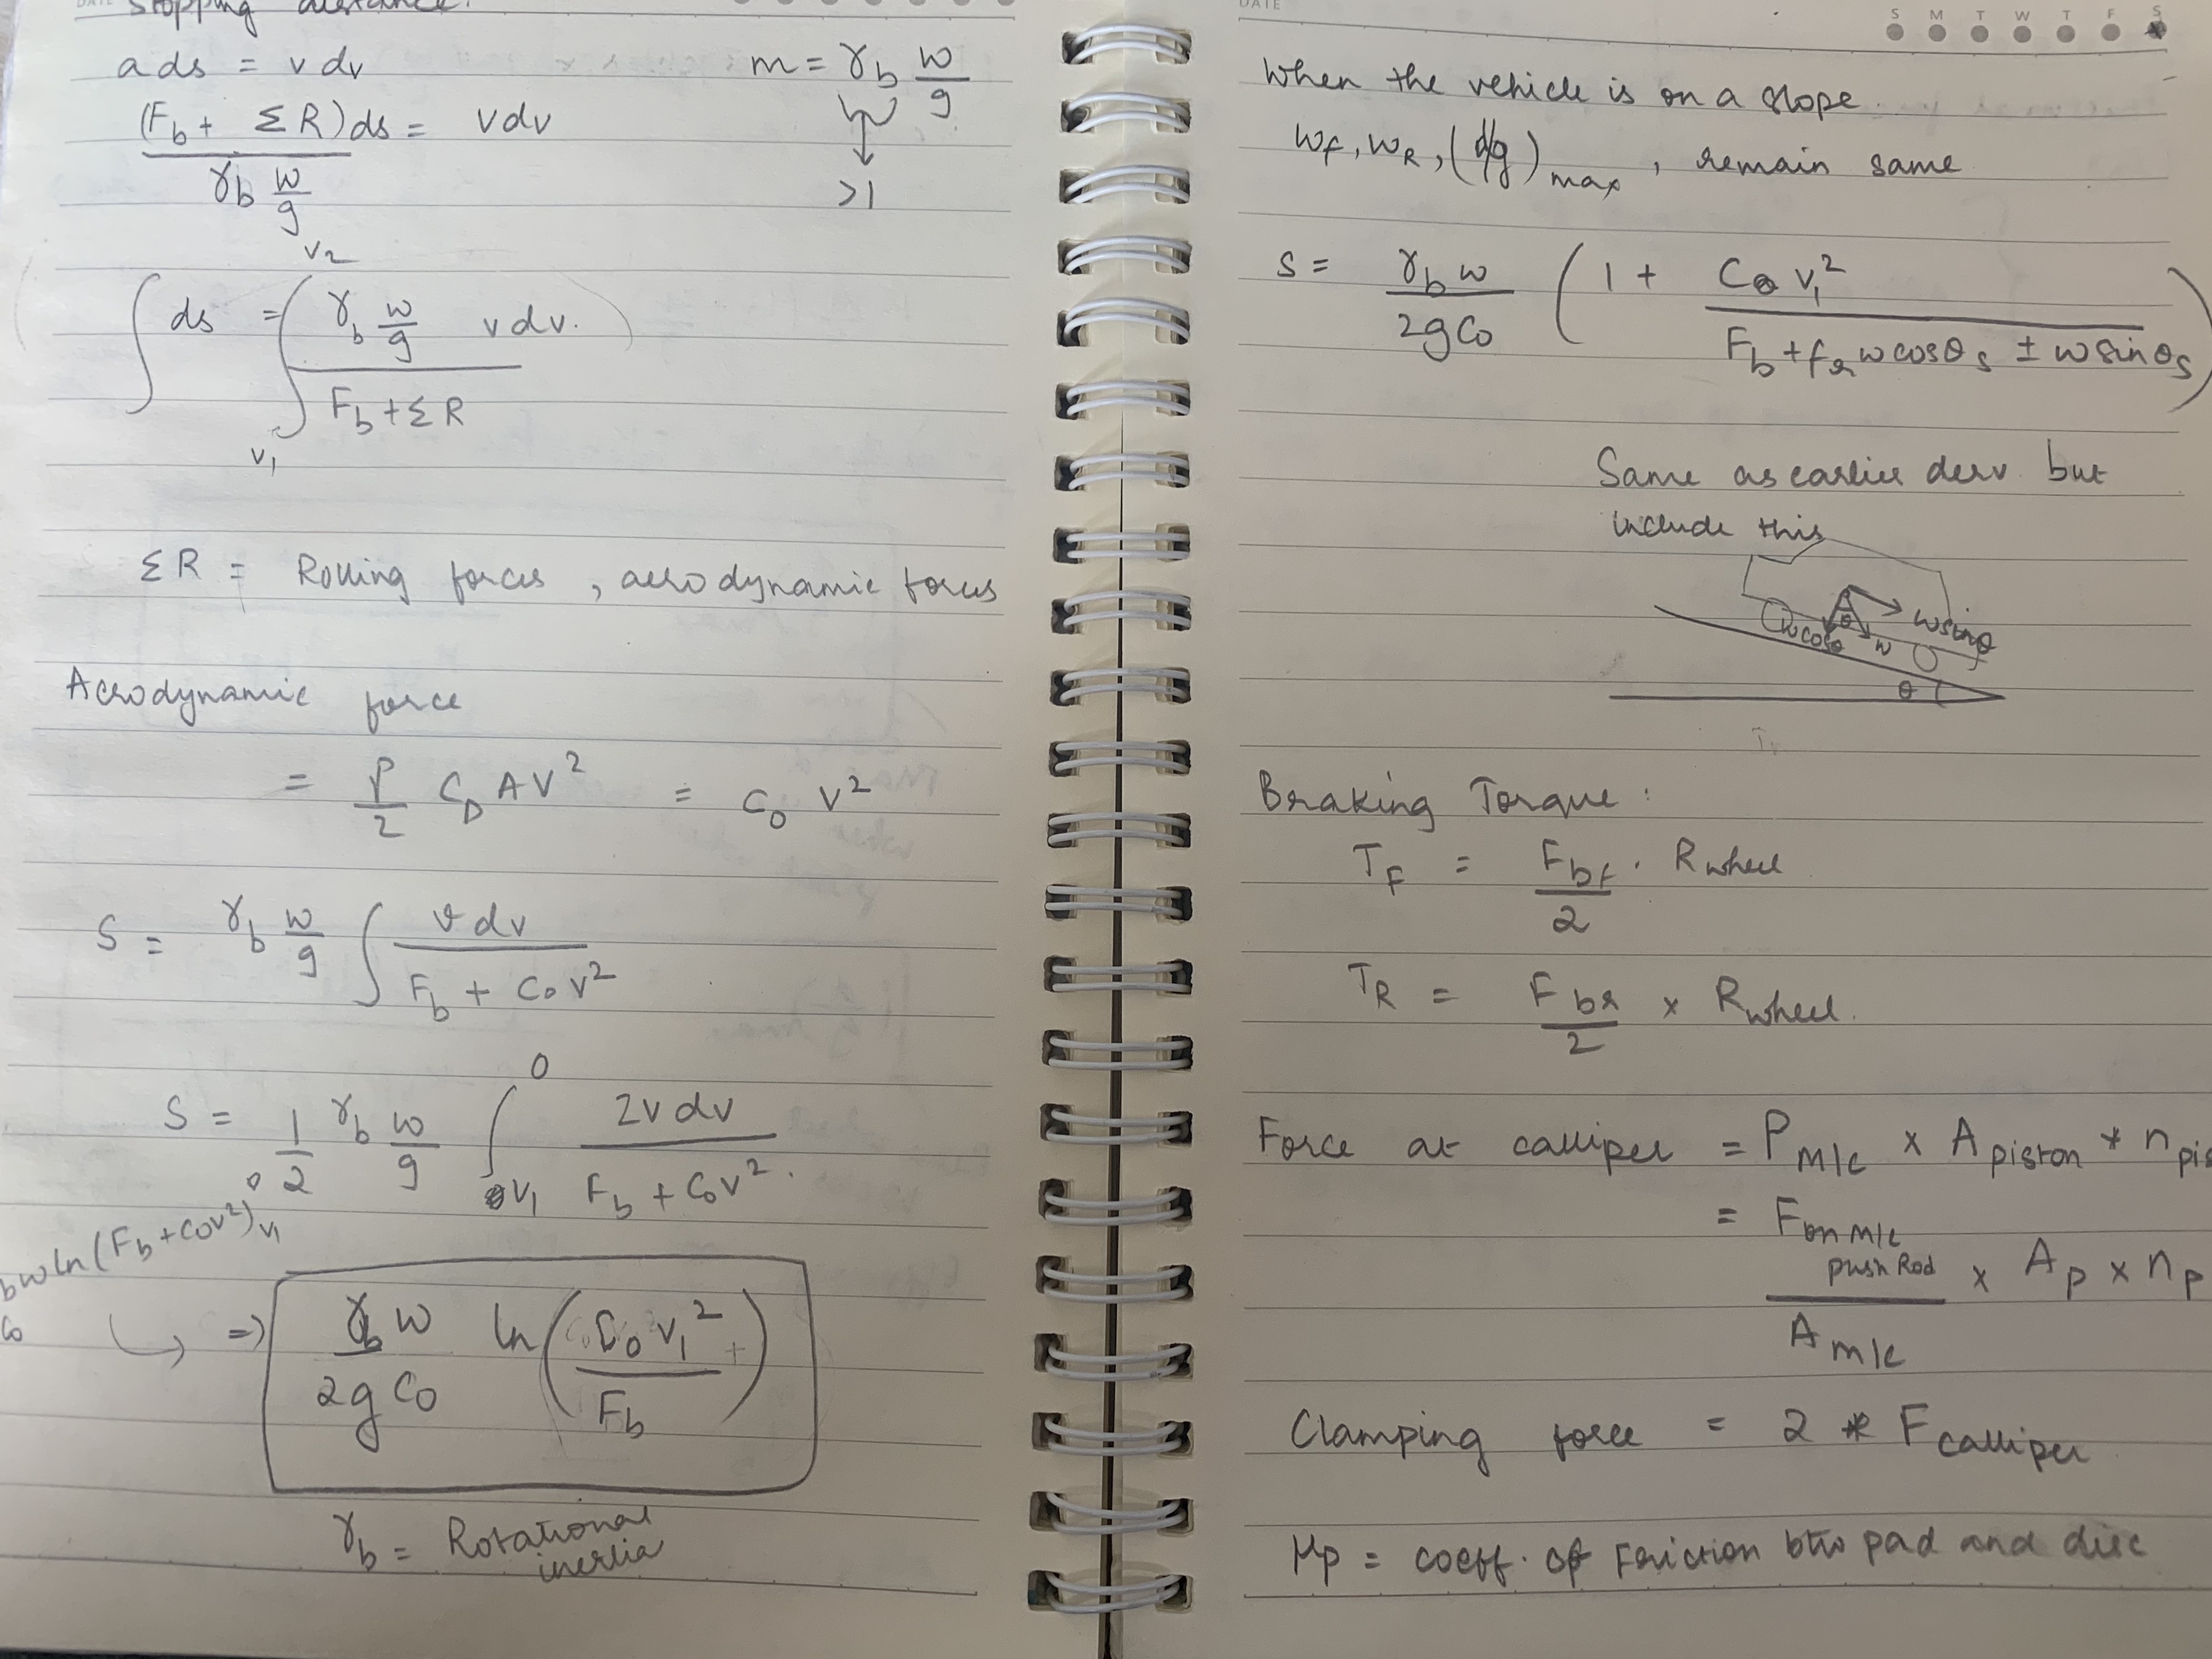 DATE
Stopping distance:
a ds = v dv
m = γb w/g
>1
(Fb + ΣR) ds / (γb w/g) = v dv
∫ ds = ∫_{v1}^{v2} γb w/g v dv. / (Fb + ΣR)
ΣR = Rolling forces, aerodynamic forces
Aerodynamic force
= ρ/2 CD A V² = C0 V²
S = γb w/g ∫ v dv / (Fb + C0 v²)
S = 1/2 γb w/g ∫_{v1}^{0} 2v dv / (Fb + C0 v²).
b w ln (Fb + C0 v²)_{v1}^{0}
C0
↳ => γb w / 2g C0 ln (C0 v1² / Fb +)
γb = Rotational
inertia
DATE
S M T W T F S
When the vehicle is on a slope.
wf, wR, (d/g)max, remain same
S = γb w / 2g C0 (1 + C0 v1² / (Fb + fr w cosθs ± w sinθs))
Same as earlier derv. but
include this
w sinθ
w cosθ
θ
w
θ
Braking Torque:
TF = Fbf / 2 . R wheel
TR = Fbr / 2 × R wheel.
Force at calliper = P M/C × A piston * n pis
= F on M/C push Rod / A M/C × Ap × np
Clamping force = 2 * F calliper
μp = coeff. of Friction btw pad and disc